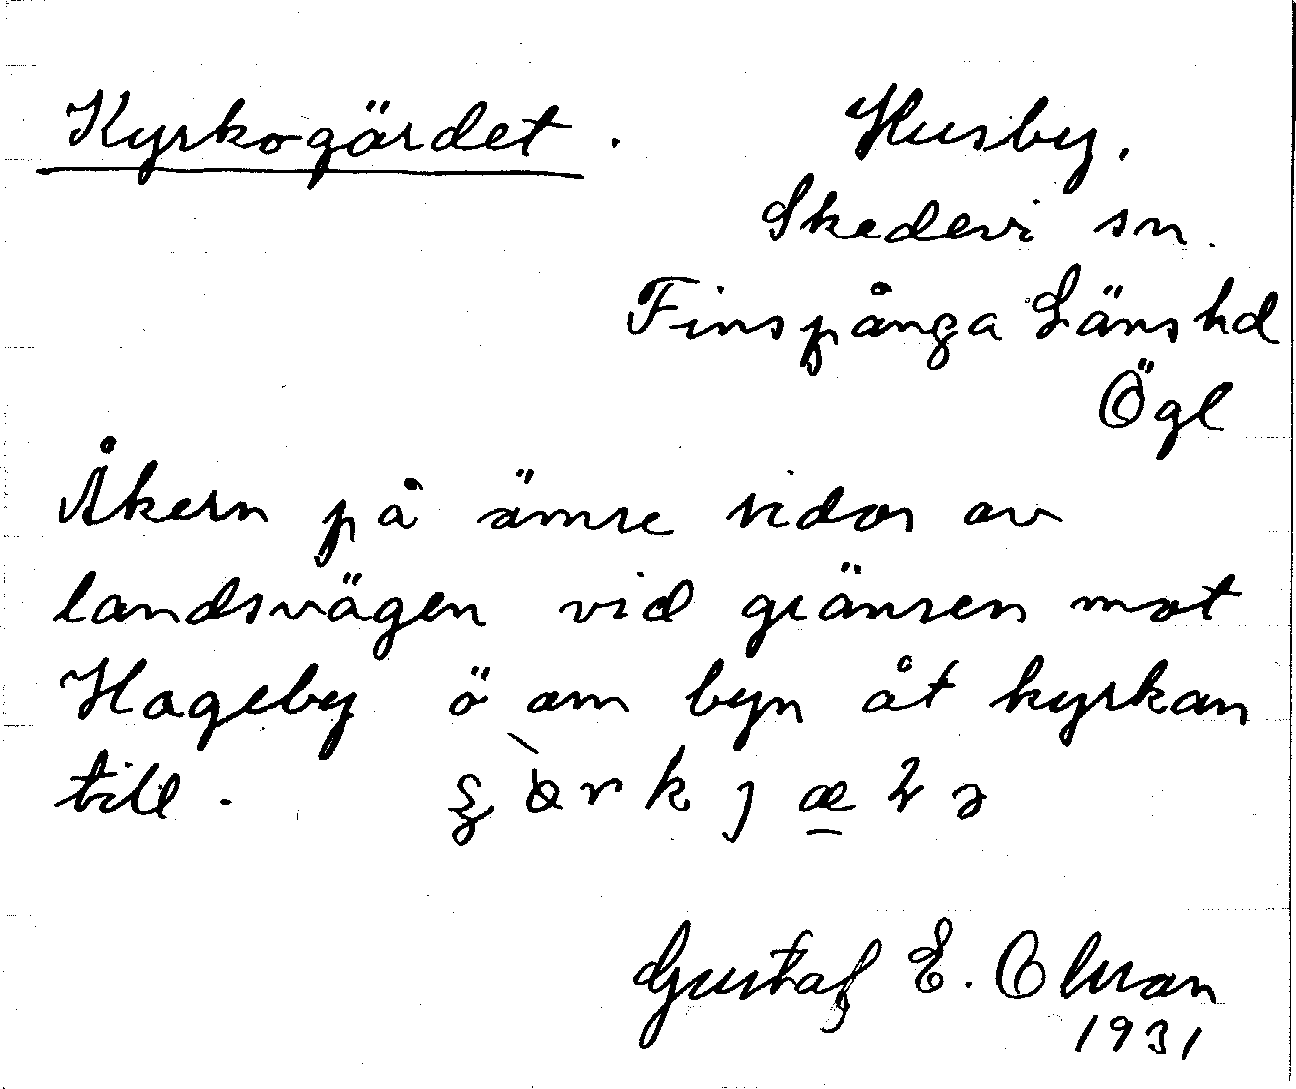 Kyrkogärdet. Husby.
Skedevi sn.
Finspånga Länshd
Ögl
Åkern på ömse sidor av
landsvägen vid gränsen mot
Hageby ö om byn åt kyrkan
till.
Gustaf E. Olsson
1931